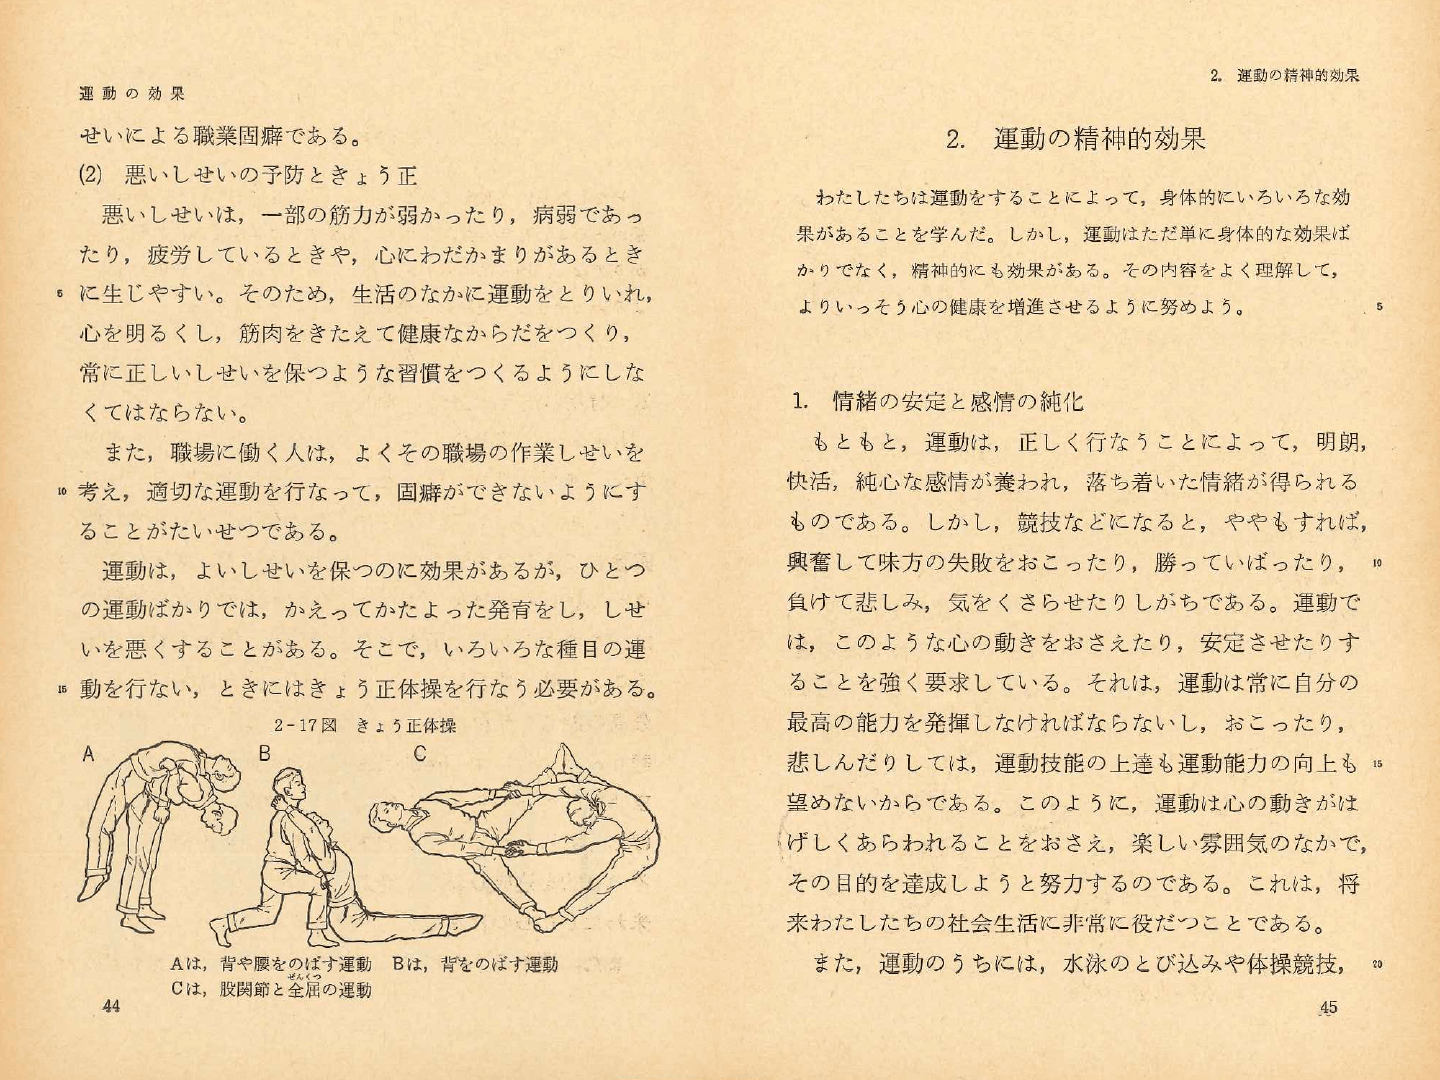 運動の効果
せいによる職業固癖である。
(2) 悪いしせいの予防ときょう正
悪いしせいは，一部の筋力が弱かったり，病弱であっ
たり，疲労しているときや，心にわだかまりがあるとき
5 に生じやすい。そのため，生活のなかに運動をとりいれ，
心を明るくし，筋肉をきたえて健康なからだをつくり，
常に正しいしせいを保つような習慣をつくるようにしな
くてはならない。
また，職場に働く人は，よくその職場の作業しせいを
10 考え，適切な運動を行なって，固癖ができないようにす
ることがたいせつである。
運動は，よいしせいを保つのに効果があるが，ひとつ
の運動ばかりでは，かえってかたよった発育をし，しせ
いを悪くすることがある。そこで，いろいろな種目の運
15 動を行ない，ときにはきょう正体操を行なう必要がある。
2-17図 きょう正体操
A B C
Aは，背や腰をのばす運動 Bは，背をのばす運動
ぜんくつ
Cは，股関節と全屈の運動
44
2. 運動の精神的効果
2. 運動の精神的効果
わたしたちは運動をすることによって，身体的にいろいろな効
果があることを学んだ。しかし，運動はただ単に身体的な効果ば
かりでなく，精神的にも効果がある。その内容をよく理解して，
よりいっそう心の健康を増進させるように努めよう。 5
1. 情緒の安定と感情の純化
もともと，運動は，正しく行なうことによって，明朗，
快活，純心な感情が養われ，落ち着いた情緒が得られる
ものである。しかし，競技などになると，ややもすれば，
興奮して味方の失敗をおこったり，勝っていばったり， 10
負けて悲しみ，気をくさらせたりしがちである。運動で
は，このような心の動きをおさえたり，安定させたりす
ることを強く要求している。それは，運動は常に自分の
最高の能力を発揮しなければならないし，おこったり，
悲しんだりしては，運動技能の上達も運動能力の向上も 15
望めないからである。このように，運動は心の動きがは
げしくあらわれることをおさえ，楽しい雰囲気のなかで，
その目的を達成しようと努力するのである。これは，将
来わたしたちの社会生活に非常に役だつことである。
また，運動のうちには，水泳のとび込みや体操競技， 20
45